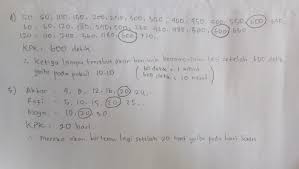 50 100, 150, 200, 250, 300, 350, 400, 450, 500, 550 600 650
60 = 60, 120, 180, 240, 300, 360, 420, 480, 540 600 660
120 = 120 240, 360, 480 600 720
KPK : 600 detik
∴ Ketiga lampu tersebut akan bersamaan lagi setelah 600 detik
yaitu pada pukul 10.10
60 detik = 1 menit
600 detik = 10 menit
5) Akbar = 4, 8, 12, 16, 20 24,..
= 5, 10, 15, 20 25...
= 10, 20 30,
KPK : 20 hari
∴ Mereka akan bertemu lagi setelah 20 hari yaitu pada hari